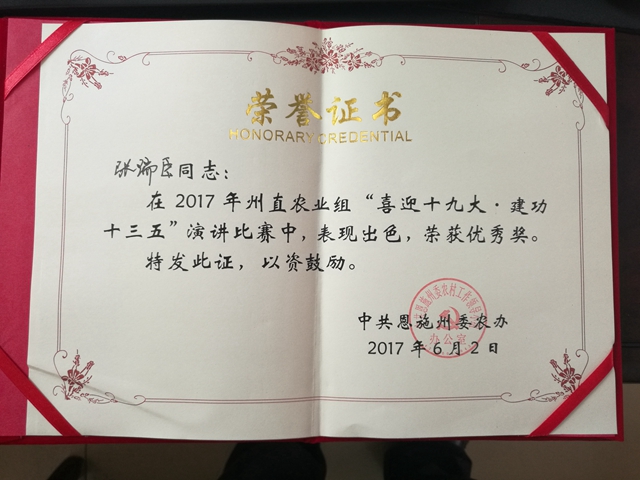 荣誉证书
HONORARY CREDENTIAL
张瑞臣同志：
在 2017 年州直农业组“喜迎十九大·建功
十三五”演讲比赛中，表现出色，荣获优秀奖。
特发此证，以资鼓励。
中共恩施州委农办
2017 年 6 月 2 日
办公室